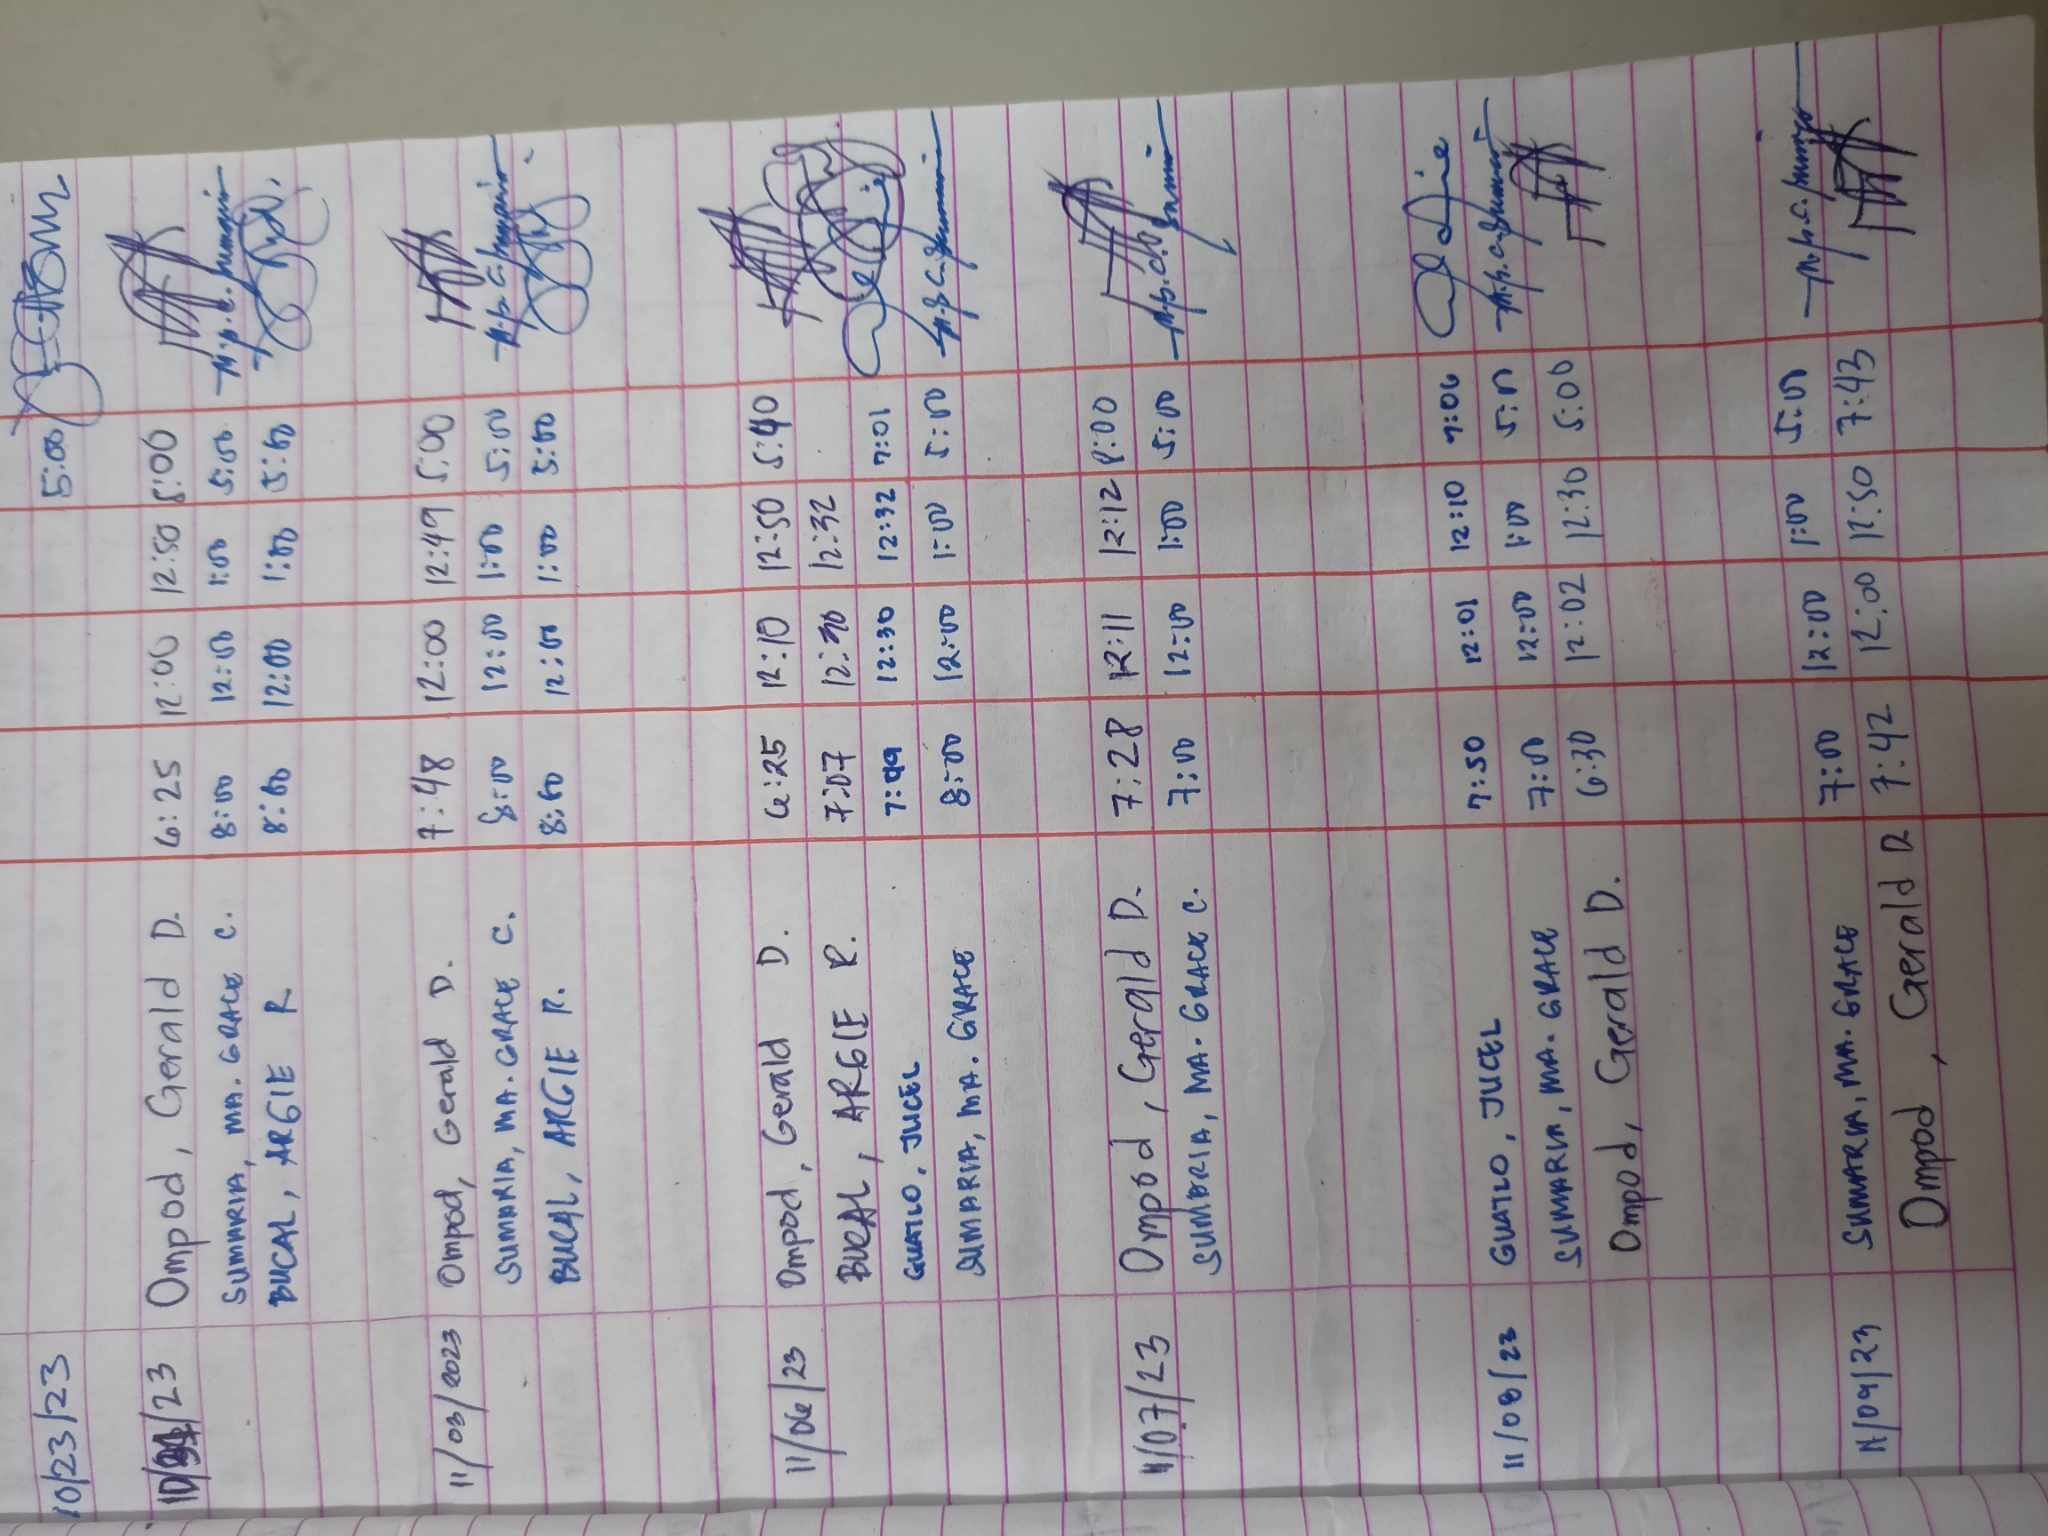 10/23/23 5:00
/23 Ompod, Gerald D. 6:25 12:00 12:50 5:00
SUMARIA, MA. GRACE C. 8:00 12:00 1:00 5:00
BUCAL, ARGIE R 8:00 12:00 1:00 5:00
11/03/2023 Ompod, Gerald D. 7:48 12:00 12:49 5:00
SUMARIA, MA. GRACE C. 8:00 12:00 1:00 5:00
BUCAL, ARGIE R. 8:00 12:00 1:00 5:00
11/06/23 Ompod, Gerald D. 6:25 12:10 12:50 5:40
BUCAL, ARGIE R. 7:07 12:30 12:32
GUATLO, JUCEL 7:49 12:30 12:32 7:01
SUMARIA, MA. GRACE 8:00 12:00 1:00 5:00
11/07/23 Ompod, Gerald D. 7:28 12:11 12:12 8:00
SUMARIA, MA. GRACE C. 7:00 12:00 1:00 5:00
11/08/23 GUATLO, JUCEL 7:50 12:01 12:10 7:06
SUMARIA, MA. GRACE 7:00 12:00 1:00 5:00
Ompod, Gerald D. 6:30 12:02 12:30 5:00
11/09/23 SUMARIA, MA. GRACE 7:00 12:00 1:00 5:00
Ompod, Gerald D 7:42 12:00 12:50 7:43